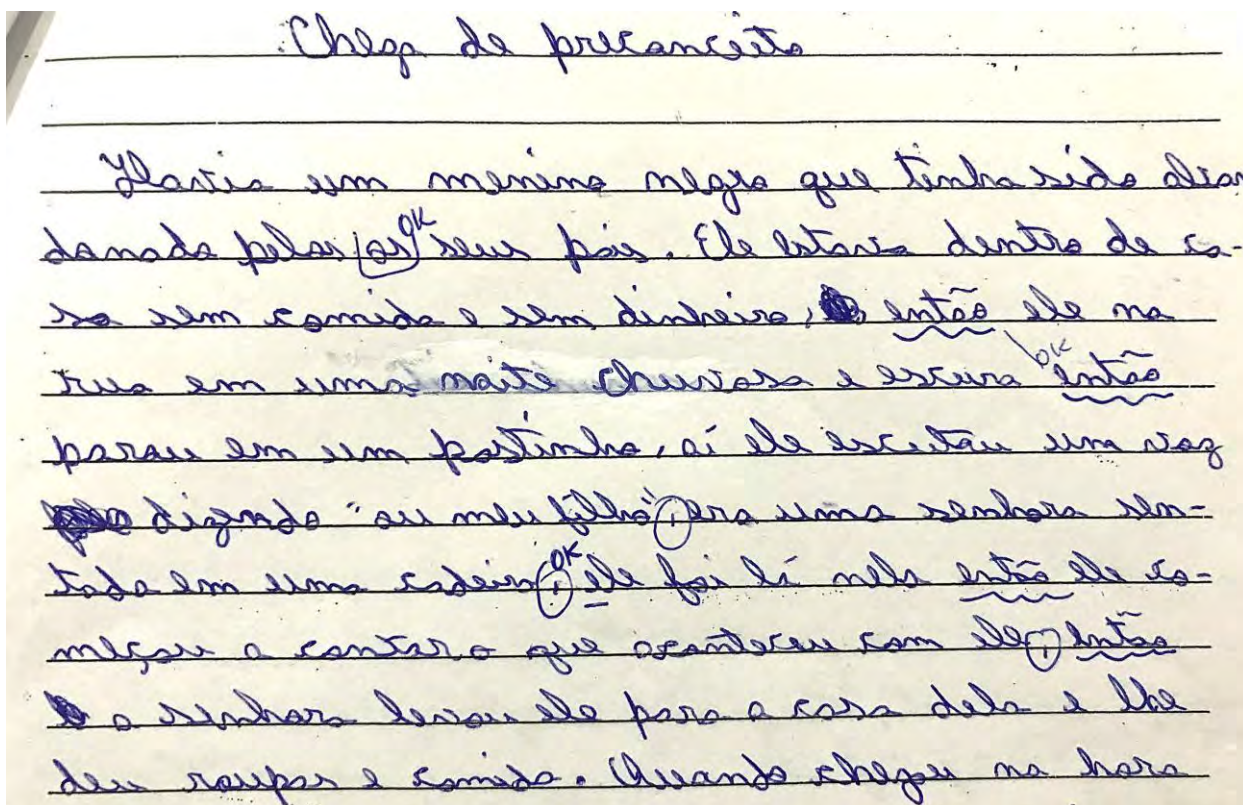 Chega de preconceito
Havia um menino negro que tinha sido aban
donado pelos os OK seus pais. Ele estava dentro de ca-
sa sem comida e sem dinheiro, então ele na
rua em uma noite chuvosa e escura OK então
parou em um postinho, aí ele escutou um voz
dizendo "ou meu filho", era uma senhora sen-
tada em uma cadeira, OK ele foi lá nela então ele co-
meçou a contar o que aconteceu com ele, então
a senhora levou ele para a casa dela e lhe
deu roupas e comida. Quando chegou na hora